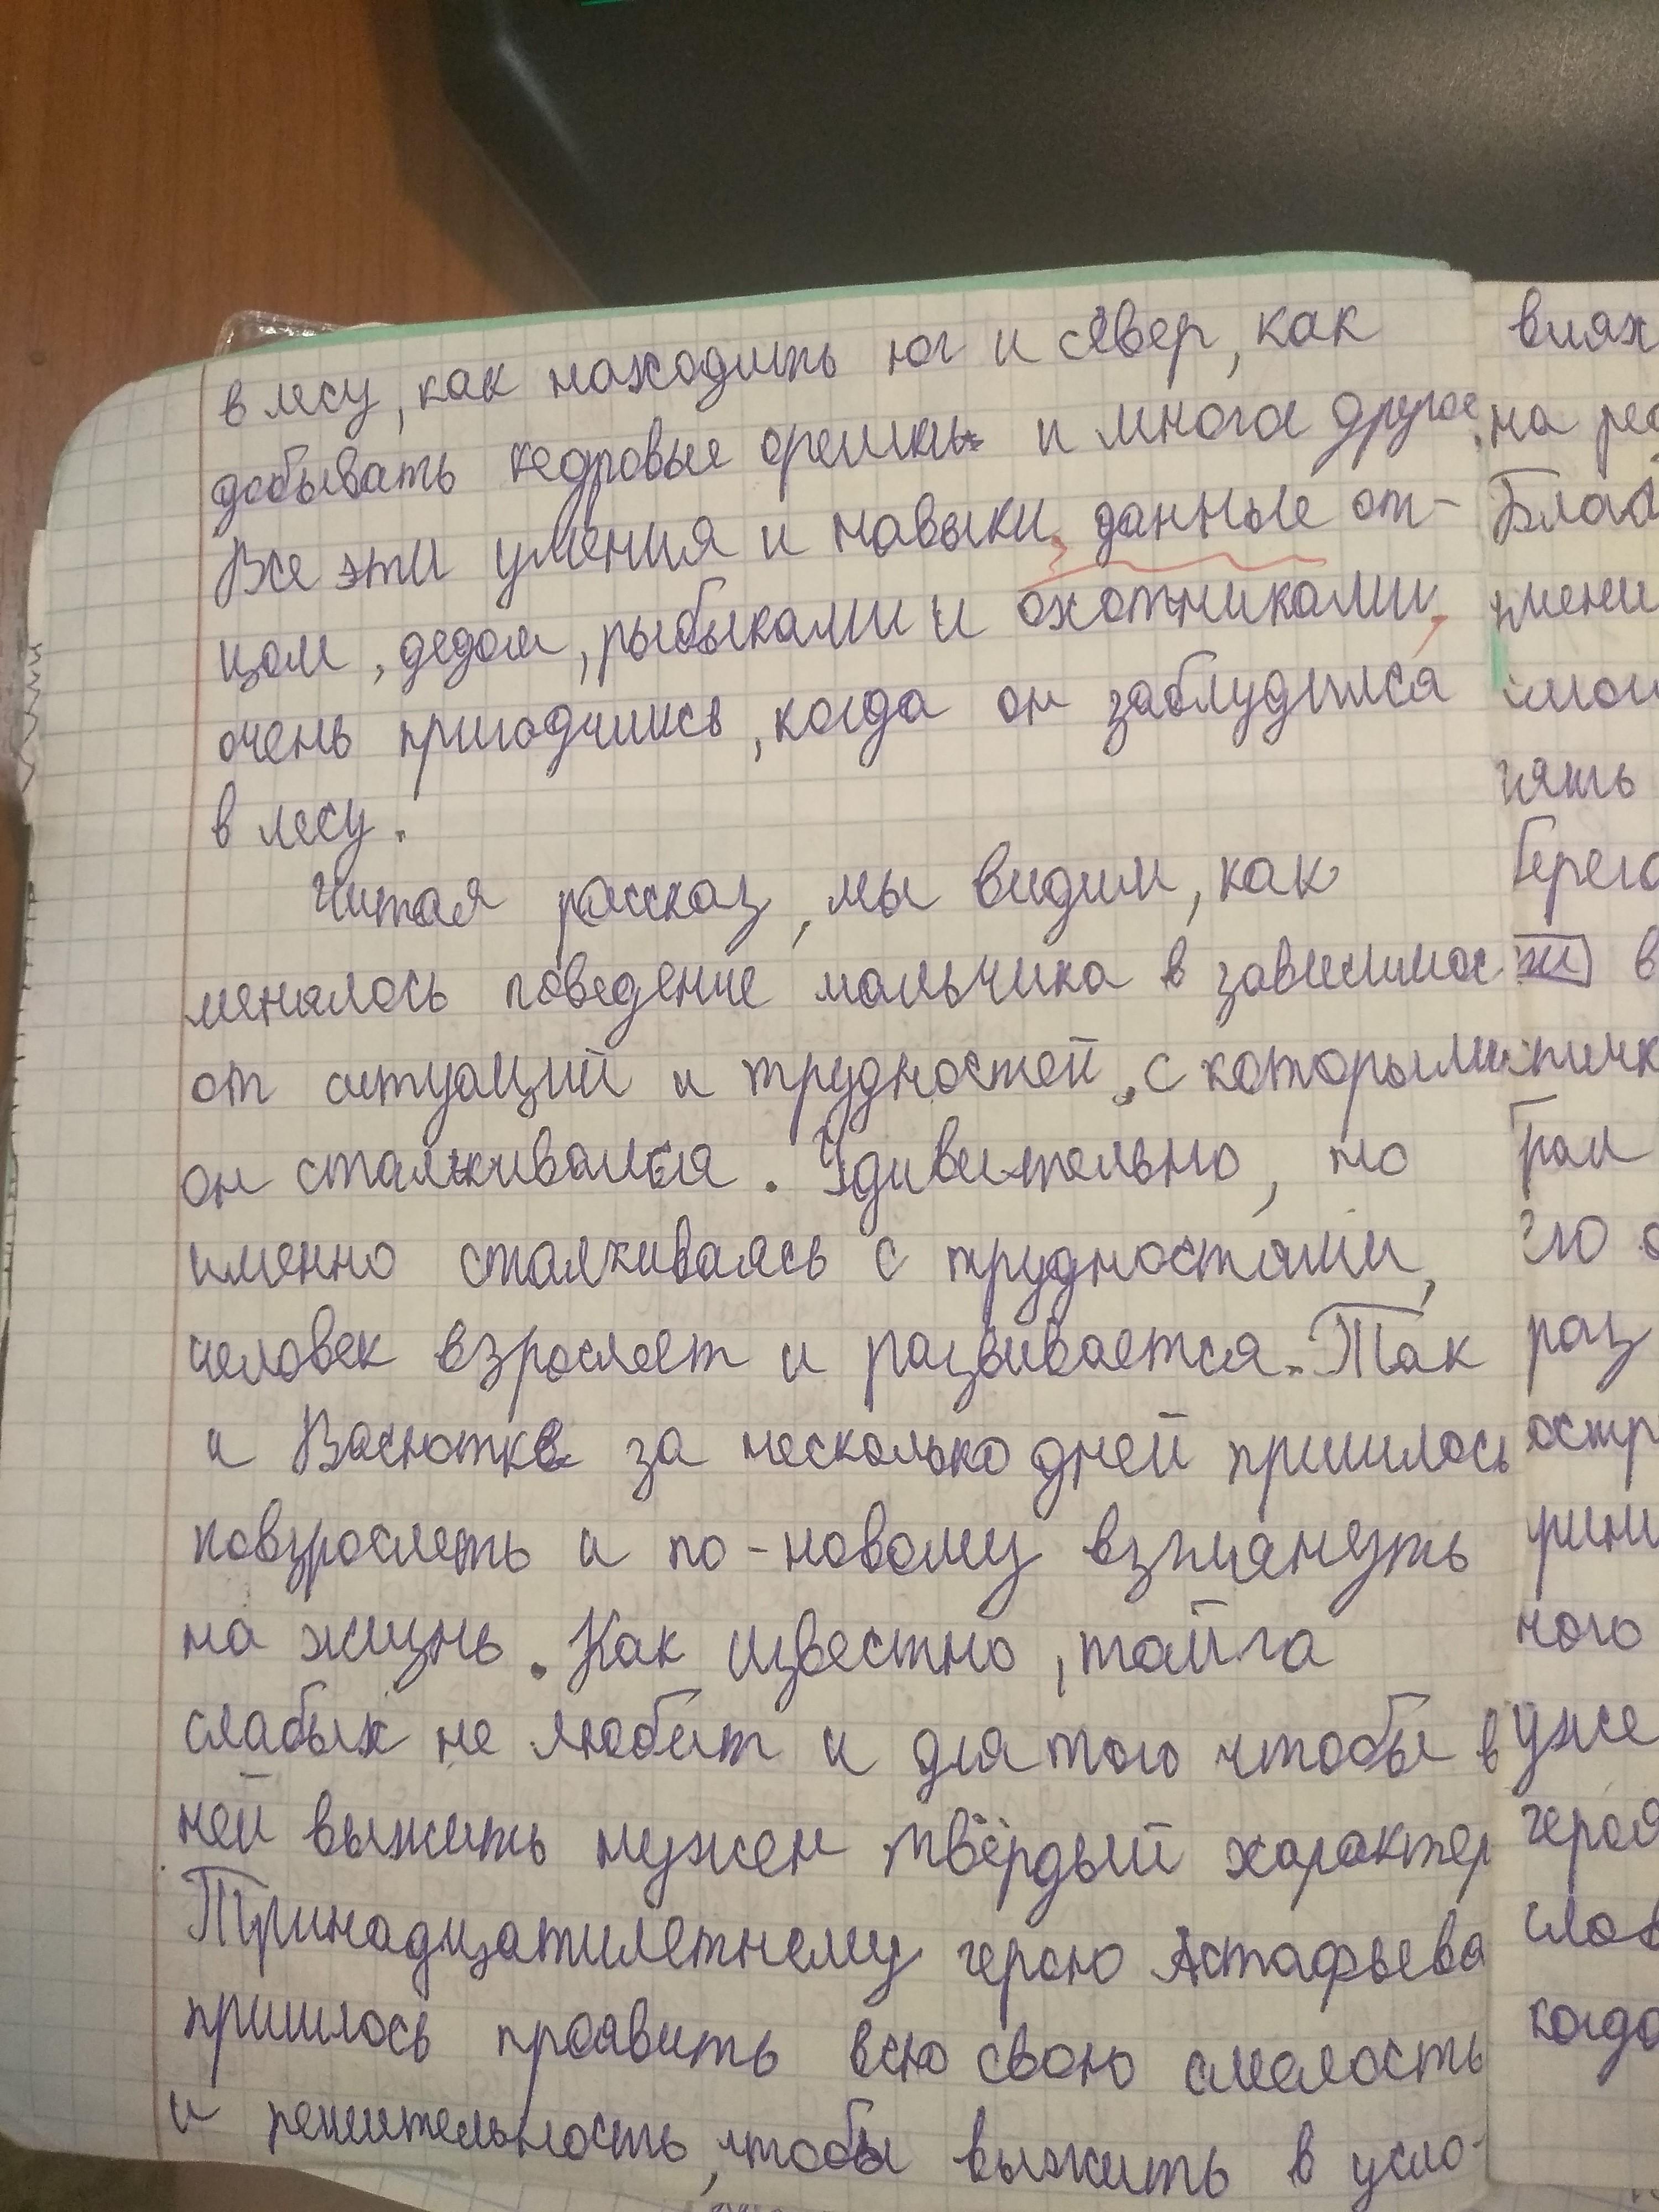 в лесу, как находить юг и север, как
добывать кедровые орешки и много другое.
Все эти умения и навыки, данные от-
цом, дедом, рыбыками и охотниками,
очень пригодились, когда он заблудился
в лесу.
Читая рассказ, мы видим, как
менялось поведение мальчика в зависимости
от ситуаций и трудностей, с которыми
он сталкивался. Удивительно, но
именно сталкиваясь с трудностями,
человек взрослеет и развивается. Так
и Васютке за несколько дней пришлось
повзрослеть и по-новому взглянуть
на жизнь. Как известно, тайга
слабых не любит и для того чтобы в
ней выжить нужен твёрдый характер
Тринадцатилетнему герою Астафьева
пришлось проявить всю свою смелость
и решительность, чтобы выжить в усло-
виях
на
берег
в
раз
ного
уже
героя
слов
когда